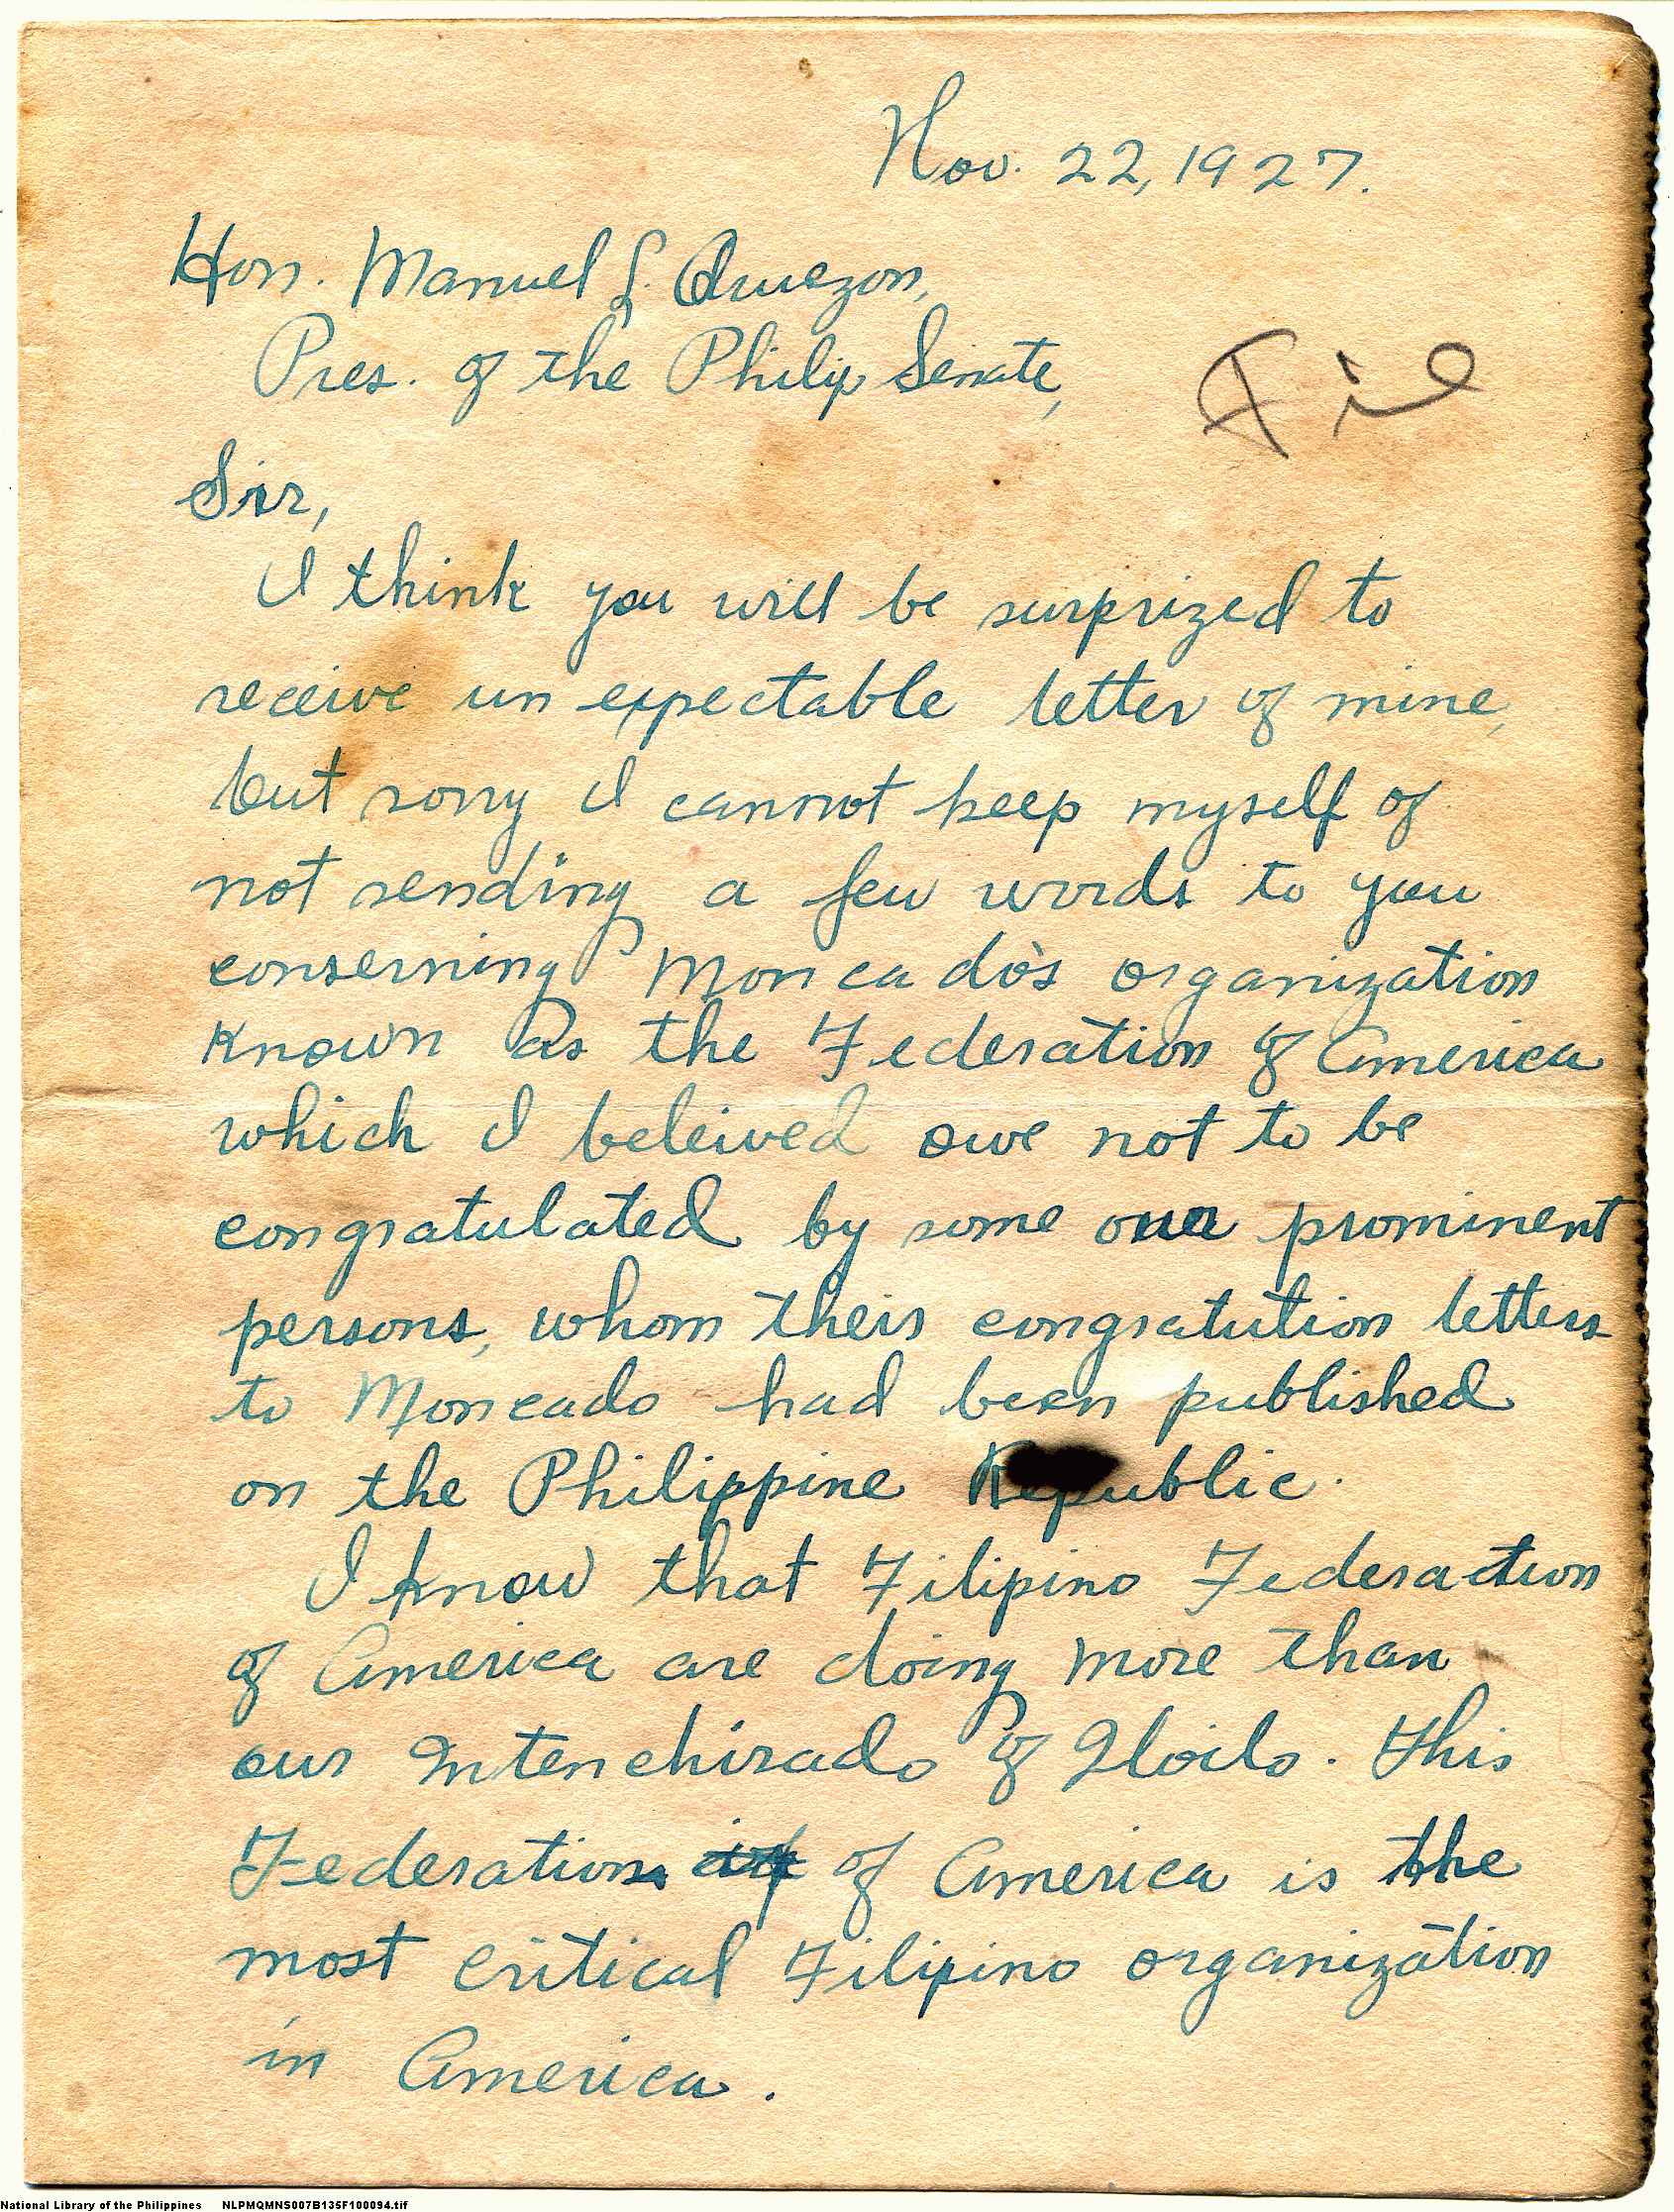 Nov. 22, 1927.
Hon. Manuel L. Quezon,
Pres. of the Philip Senate,
File
Sir,
I think you will be surprized to
receive un expectable letter of mine,
but sorry I cannot keep myself of
not sending a few words to you
conserning Moncado's organization
known as the Federation of America
which I beleived owe not to be
congratulated by some our prominent
persons, whom their congratution letters
to Moncado had been published
on the Philippine Republic.
I know that Filipino Federaction
of America are doing more than
our Intenchirado of Iloilo. This
Federation of America is the
most critical Filipino organization
in America.
National Library of the Philippines NLPMQMNS007B135F100094.tif